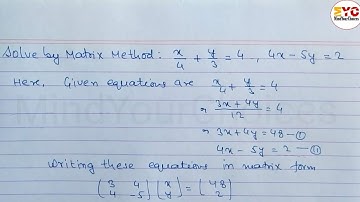 SYC
MindYourChoices
Solve by Matrix Method: x/4 + y/3 = 4, 4x - 5y = 2
Here, Given equations are x/4 + y/3 = 4
⇒ 3x + 4y/12 = 4
⇒ 3x + 4y = 48 - ①
4x - 5y = 2 - ②
Writing these equations in matrix form
(3 4
4 -5) (x
y) = (48
2)
MindYourChoices